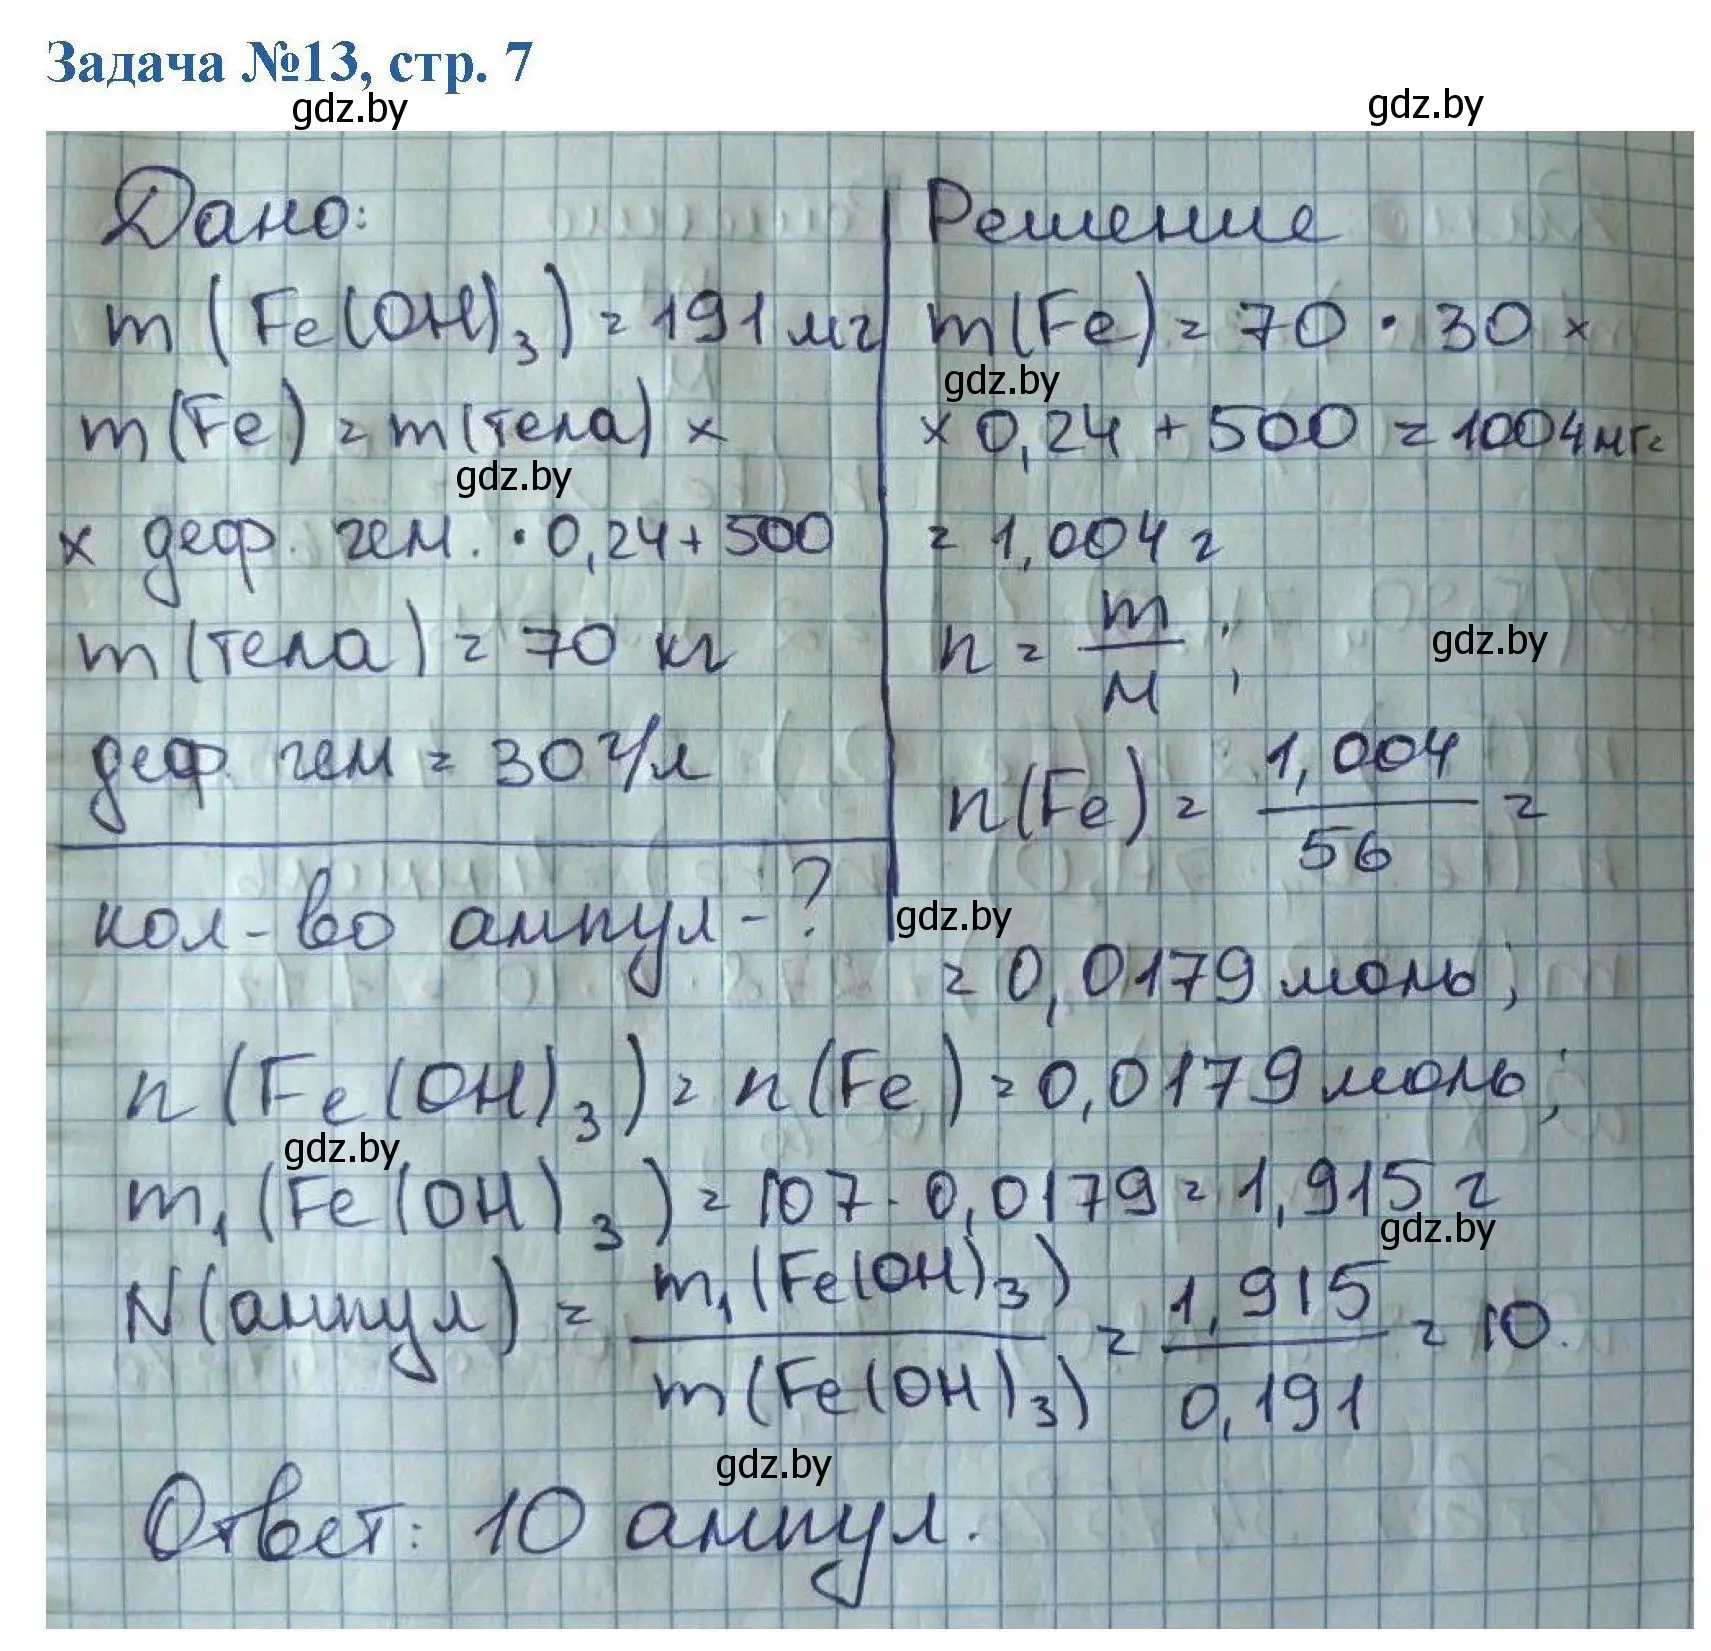 Задача №13, стр. 7
gdz.by
gdz.by
Дано:
m (Fe(OH)₃) = 191 мг
m(Fe) = m(тела) ×
gdz.by
× деф. гем. · 0,24 + 500
m(тела) = 70 кг
деф. гем = 30 г/л
кол-во ампул - ?
Решение
m(Fe) = 70 · 30 ×
gdz.by
× 0,24 + 500 = 1004 мг =
= 1,004 г
n = m/M ;
gdz.by
n(Fe) = 1,004/56 =
gdz.by
= 0,0179 моль;
n (Fe(OH)₃) = n(Fe) = 0,0179 моль;
gdz.by
m₁(Fe(OH)₃) = 107 · 0,0179 = 1,915 г
gdz.by
N(ампул) = m₁(Fe(OH)₃)/m(Fe(OH)₃) = 1,915/0,191 = 10.
gdz.by
Ответ: 10 ампул.